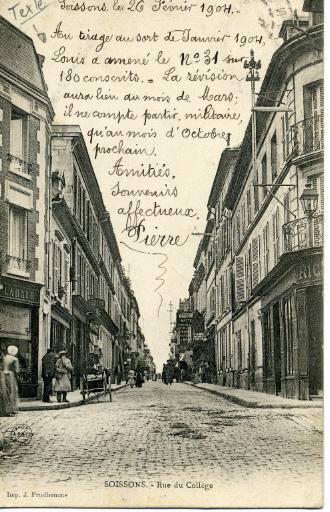 Texte
Soissons, le 26 Février 1904.
Au tirage au sort de Janvier 1904,
Louis a amené le N° 31 sur
180 conscrits. - La révision
aura lieu au mois de Mars;
il ne compte partir, militaire,
qu'au mois d'Octobre
prochain.
Amitiés.
Souvenirs
affectueux.
Pierre
SOISSONS. - Rue du Collège
Imp. J. Prudhomme